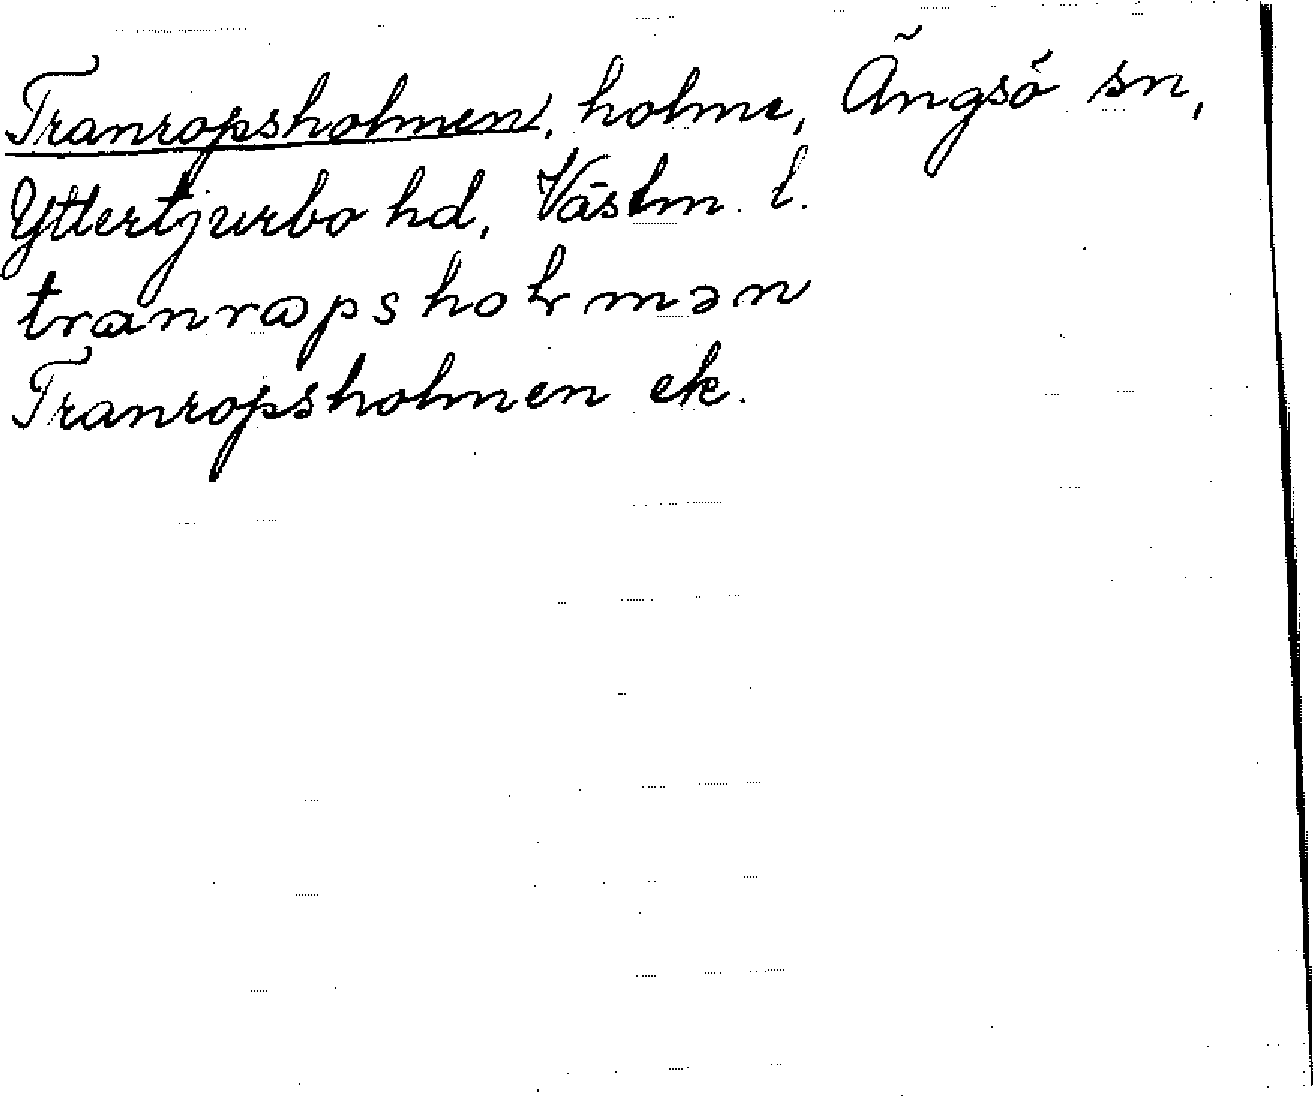 Tranropsholmen, holme, Ängsö sn,
Yttertjurbo hd, Västm. l.
tranrωpshoɫmən
Tranropsholmen ek.